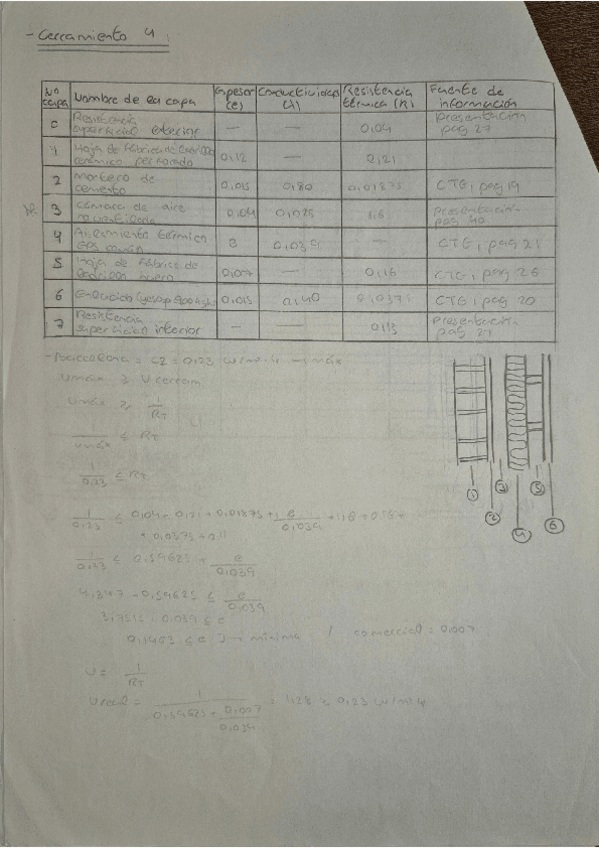 - Cerramiento 4:
Nº capa | Nombre de la capa | Espesor (e) | Conductividad (λ) | Resistencia térmica (R) | Fuente de información
0 | Resistencia superficial exterior | — | — | 0,04 | Presentación pag 27
1 | Hoja de fábrica de ladrillo cerámico perforado | 0,12 | — | 0,21
2 | Mortero de cemento | 0,015 | 0,80 | 0,01875 | CTE, pag 19
3 | Cámara de aire | 0,04 | 0,025 | Presentación pag 40
4 | Aislamiento térmico EPS | e | 0,039 | — | CTE, pag 21
5 | Hoja de fábrica de ladrillo hueco | 0,07 | — | 0,16 | CTE, pag 26
6 | Enlucido | 0,015 | 0,40 | 0,0375 | CTE, pag 20
7 | Resistencia superficial interior | — | — | 0,13 | Presentación pag 27
- Barcelona = C2 = 0,23 → máx
Umáx ≥ U cerram
Umáx ≥ 1/RT
1/Umáx ≤ RT
1/0,23 ≤ RT
1/0,23 ≤ 0,04 + 0,21 + 0,01875 + e/0,039
1/0,23 ≤ 0,59625 + e/0,039
4,347 - 0,59625 ≤ e/0,039
0,039 ≤ e
0,1463 ≤ e → mínima / comercial = 0,007
U = 1/RT
Ureal = 1/(0,59625 + 0,007/0,039) = 1,28 ≥ 0,23
1
2
3
4
5
6